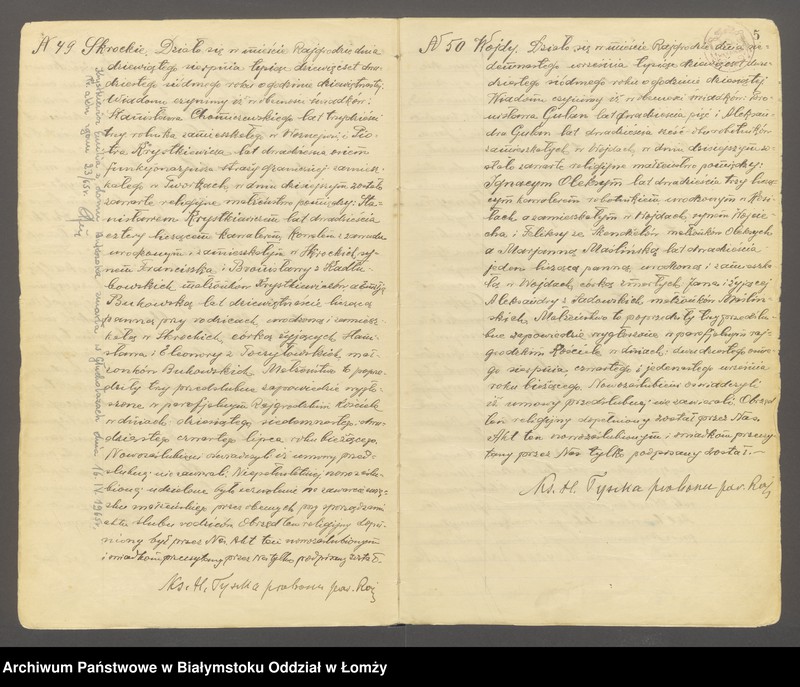 N 49 Skrockie. Działo się w mieście Rajgrodzie dnia
dziewiątego sierpnia tysiąc dziewięćset dwa-
dziestego siódmego roku o godzinie dziewiętnastej.
Wiadomo czynimy iż w obecności świadków:
Stanisława lat trzydzieści
trzy rolnika zamieszkałego w i Pio-
tra Krystkiewicza lat dwadzieścia osiem
funkcjonarjusza straży granicznej zamiesz-
kałego w Tworkach, w dniu dzisiejszym zostało
zawarte religijne małżeństwo pomiędzy: Sta-
nisławem Krystkiewiczem lat dwadzieścia
cztery liczącym kawalerem, z zawodu
urodzonym i zamieszkałym w Skrockich, sy-
nem Franciszka i Bronisławy z Kadłu-
bowskich małżonków Krystkiewiczów a
Bukowską lat dziewiętnaście liczącą
panną przy rodzicach, urodzoną i zamiesz-
kałą w Skrockich, córką żyjących Stani-
sława i Eleonory z małż
żonków Bukowskich. Małżeństwo to poprze-
dziły trzy przedślubne zapowiedzie wygło-
szone w parafjalnym Rajgrodzkim Kościele
w dniach: dziesiątego, siedemnastego, dwa-
dziestego czwartego lipca roku bieżącego.
Nowozaślubieni oświadczyli iż umowy przed-
ślubnej nie zawarli. Niepełnoletniej nowozaślu-
bionej udzielone było zezwolenie na zawarcie zwią-
zku małżeńskiego przez obecnych przy sporządzaniu
aktu ślubu rodziców. Obrzęd ten religijny dopeł-
niony był przez Nas. Akt ten nowozaślubionym
i świadkom przeczytany przez Nas tylko podpisany został.
Ks. H. Tyszka proboszcz par. Raj
zmarła w dnia 16. IV. 1965r.
5
N 50 Wojdy. Działo się w mieście Rajgrodzie dnia
września tysiąc dziewięćset dwu-
dziestego siódmego roku o godzinie dziesiątej
Wiadomo czynimy iż w obecności świadków: Bro-
nisława Gulan lat dwadzieścia pięć i Aleksan-
dra Gulan lat dwadzieścia sześć obu robotników
zamieszkałych w Wojdach, w dniu dzisiejszym zo-
stało zawarte religijne małżeństwo pomiędzy:
Ignacym Olekszym lat dwadzieścia trzy liczą-
cym kawalerem robotnikiem urodzonym w Kosi-
łach a zamieszkałym w Wojdach, synem Wojcie-
cha i Feliksy ze małżonków Olekszych
a Marjanną Maślińską lat dwadzieścia
jeden liczącą panną, urodzoną i zamieszka-
łą w Wojdach, córką zmarłych Jana i żyjącej
Aleksandry z Sadowskich małżonków Maśliń-
skich. Małżeństwo to poprzedziły trzy przedślu-
bne zapowiedzie wygłoszone w parafjalnym raj-
grodzkim Kościele w dniach: dwudziestego ósme-
go sierpnia, czwartego i jedenastego września
roku bieżącego. Nowozaślubieni oświadczyli
iż umowy przedślubnej nie zawarli. Obrzęd
ten religijny dopełniony został przez Nas.
Akt ten nowozaślubionym i świadkom przeczy-
tany przez Nas tylko podpisany został.—
Ks. H. Tyszka proboszcz par. Raj
Archiwum Państwowe w Białymstoku Oddział w Łomży